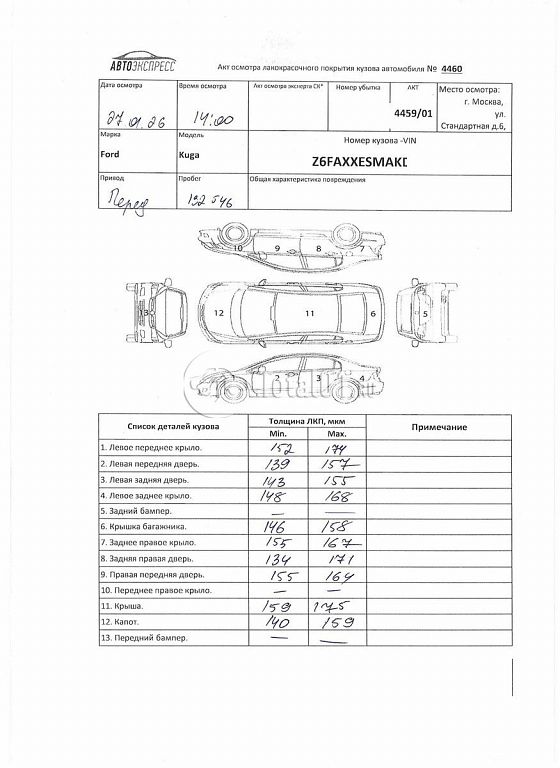 АВТОЭКСПРЕСС
Акт осмотра лакокрасочного покрытия кузова автомобиля № 4460
Дата осмотра Время осмотра Акт осмотра эксперта СК* Номер убытка АКТ Место осмотра:
27 01 26 14:00 4459/01 г. Москва,
ул.
Стандартная д.6,
Марка Модель Номер кузова -VIN
Ford Kuga Z6FAXXESMAKI
Привод Пробег Общая характеристика повреждения
Перед 132 546
10 9 8 7
13 12 11 6 5
2 3 4
Список деталей кузова Толщина ЛКП, мкм Примечание
Min. Max.
1. Левое переднее крыло. 152 174
2. Левая передняя дверь. 139 157
3. Левая задняя дверь. 143 155
4. Левое заднее крыло. 148 168
5. Задний бампер. — —
6. Крышка багажника. 146 158
7. Заднее правое крыло. 155 167
8. Задняя правая дверь. 134 171
9. Правая передняя дверь. 155 164
10. Переднее правое крыло. — —
11. Крыша. 159 175
12. Капот. 140 159
13. Передний бампер. — —